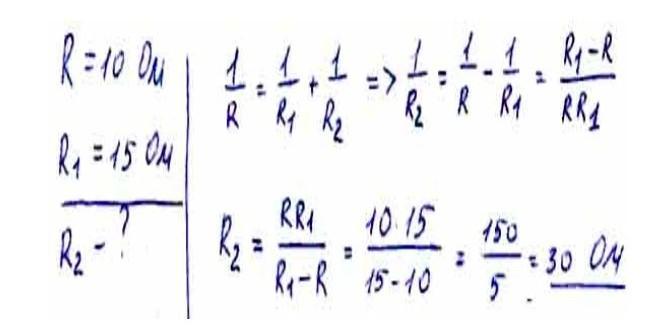 R = 10 Ом
R₁ = 15 Ом
R₂ - ?
1/R = 1/R₁ + 1/R₂ => 1/R₂ = 1/R - 1/R₁ = R₁-R/RR₁
R₂ = RR₁/R₁-R = 10·15/15-10 = 150/5 = 30 Ом